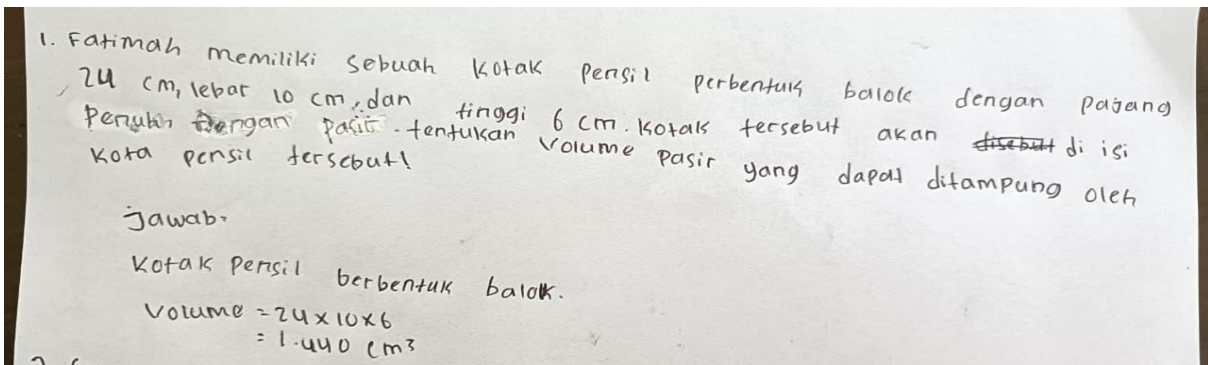 1. Fatimah memiliki sebuah kotak pensil perbentuk balok dengan pajang
24 cm, lebar 10 cm, dan tinggi 6 cm. kotak tersebut akan disebut di isi
Penuh dengan pasir. tentukan volume pasir yang dapat ditampung oleh
kota pensil tersebut!
jawab.
Kotak Pensil berbentuk balok.
Volume = 24 x 10 x 6
= 1.440 cm³